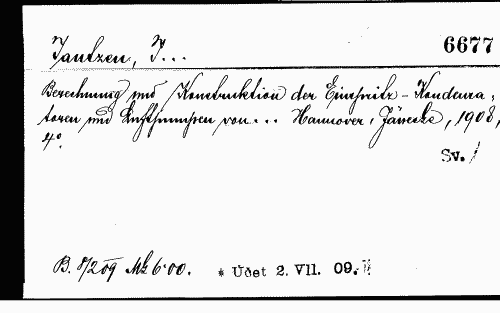 Jantzen, J... 6677
Berechnung und Konstruktion der Einspritz-Kondensa-
toren und Luftpumpen von... Hannover, Jänecke, 1908,
4°.
Sv.
B. 8/2 09 Mk 6·00. * Udet 2. VII. 09.